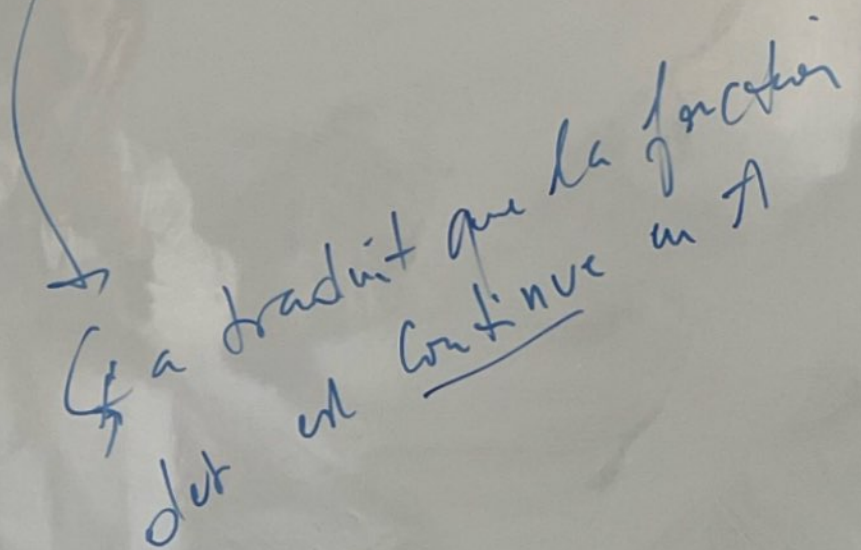 Ça traduit que la fonction
det est continue en A